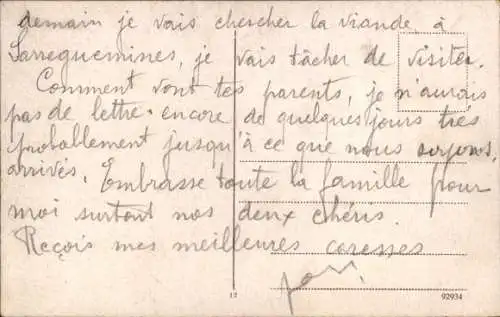 demain je vais chercher la viande à
Sarreguemines, je vais tâcher de visiter.
Comment vont tes parents, je n'aurais
pas de lettre encore de quelques jours très
probablement jusqu'à ce que nous soyons
arrivés. Embrasse toute la famille pour
moi surtout nos deux chéris.
Reçois mes meilleures caresses
12
92934